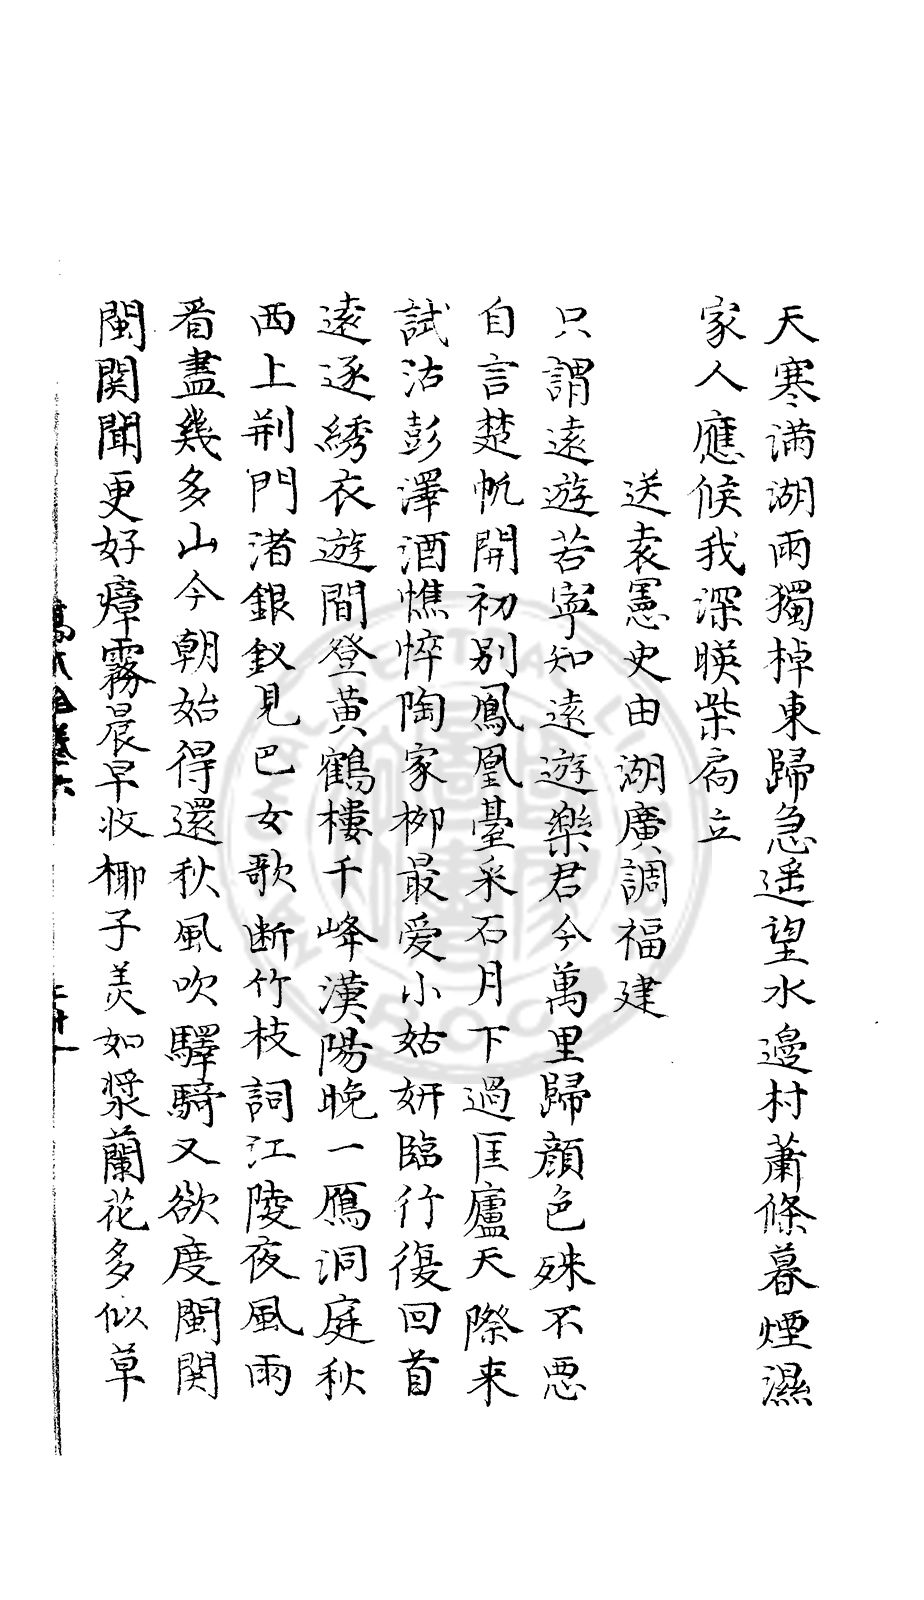 天寒满湖雨獨棹東歸急遥望水邉村蕭條暮煙濕
家人應候我深暎柴扄立
送袁憲史由湖廣調福建
只謂逺遊苦寧知逺遊樂君今萬里歸顔色殊不悪
自言楚帆開初别鳳凰臺采石月下過匡廬天際来
試沽彭澤酒憔悴陶家栁最爱小姑妍臨行復回首
逺逐綉衣遊間登黄鶴樓千峰漢陽晚一鴈洞庭秋
西上荆門渚銀釵見巴女歌断竹枝詞江陵夜風雨
看盡幾多山今朝始得還秋風吹驛騎又欲度閩関
閩関聞更好瘴霧晨早收椰子羙如漿蘭花多似草